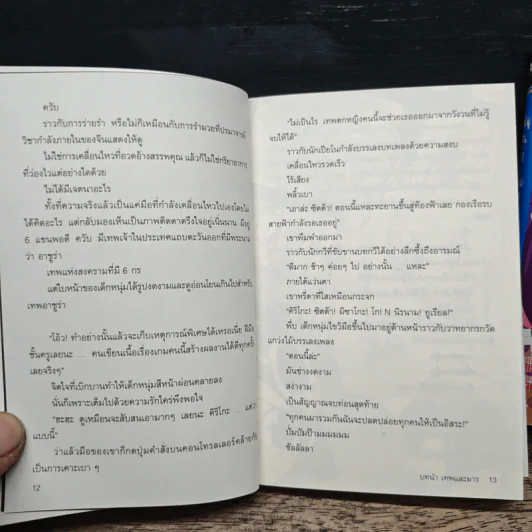 ควับ
ราวกับการร่ายรำ หรือไม่ก็เหมือนกับการรำมวยที่ปรมาจารย์
วิชากำลังภายในของจีนแสดงให้ดู
ไม่ใช่การเคลื่อนไหวที่อวดอ้างสรรพคุณ แล้วก็ไม่ใช่กริยาอาการ
ที่ว่องไวแต่อย่างใดด้วย
ไม่ได้มีเจตนาอะไร
ทั้งที่ความจริงแล้วเป็นแค่มือที่กำลังเคลื่อนไหวไปเองโดยไม่
ได้คิดอะไร แต่กลับมองเห็นเป็นภาพติดตาตรึงใจอยู่เนิ่นนาน มีอยู่
6 แขนพอดี ควับ มีเทพเจ้าในประเทศแถบตะวันออกที่มีพระนาม
ว่า อาชูร่า
เทพแห่งสงครามที่มี 6 กร
แต่ใบหน้าของเด็กหนุ่มได้รูปงดงามและดูอ่อนโยนเกินไปสำหรับ
เทพอาชูร่า
"โอ้ว! ทำอย่างนั้นแล้วจะเก็บเหตุการณ์พิเศษได้เหรอเนี่ย ฝีมือ
ชั้นครูเลยนะ ... คนเขียนเนื้อเรื่องเกมคนนี้สร้างผลงานได้ดีทุกครั้ง
เลยจริงๆ"
จิตใจที่เบิกบานทำให้เด็กหนุ่มสีหน้าผ่อนคลายลง
นั่นก็เพราะเต็มไปด้วยความรักใคร่พึงพอใจ
"ฮะฮะ ดูเหมือนจะสับสนเอามากๆ เลยนะ คิริโกะ ...
แบบนี้"
ว่าแล้วมือของเขาก็กดปุ่มคำสั่งบนคอนโทรลเลอร์คล้ายกับ
เป็นการเคาะเบา ๆ
12
"ไม่เป็นไร เทพตกหญิงคนนี้จะช่วยเธอออกมาจากวังวนที่ไม่รู้
จบให้ได้"
ราวกับนักเปียโนกำลังบรรเลงบทเพลงด้วยความสงบ
เคลื่อนไหวรวดเร็ว
ไร้เสียง
พลิ้วเบา
"เอาล่ะ ซิตต้า! ตอนนี้แหละทะยานขึ้นสู่ท้องฟ้าเลย กองเรือรบ
สายฟ้ากำลังรอเธออยู่"
เขาพึมพำออกมา
ราวกับนักกวีที่ขับขานบทกวีได้อย่างลึกซึ้งถึงอารมณ์
"ดีมาก ช้าๆ ค่อยๆ ไป อย่างนั้น ... แหละ"
ภายใต้แว่นตา
เขาหรี่ตาที่ใสเหมือนกระจก
"คิริโกะ! ซิตต้า! มิซาโกะ! โก! N นิรนาม! ยูเรียล!"
พึ่บ เด็กหนุ่มไขว้มือขึ้นไปมาอยู่ด้านหน้าราวกับวาทยากรกวัด
แกว่งไม้บรรเลงเพลง
"ตอนนี้ล่ะ"
มันช่างงดงาม
สง่างาม
เป็นสัญญาณจบท่อนสุดท้าย
"ทุกคนมารวมกันฉันจะปลดปล่อยทุกคนให้เป็นอิสระ!"
ปิ๊มปิ๊มป๊ามมมมมม
ซัลลัลลา
บทนำ เทพและมาร 13